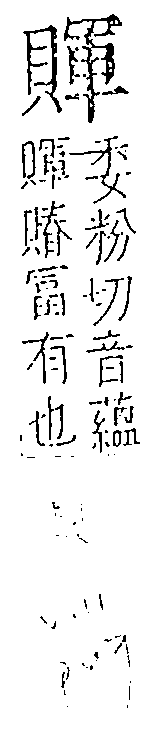 賱
委粉切音藴
賱賰富有也